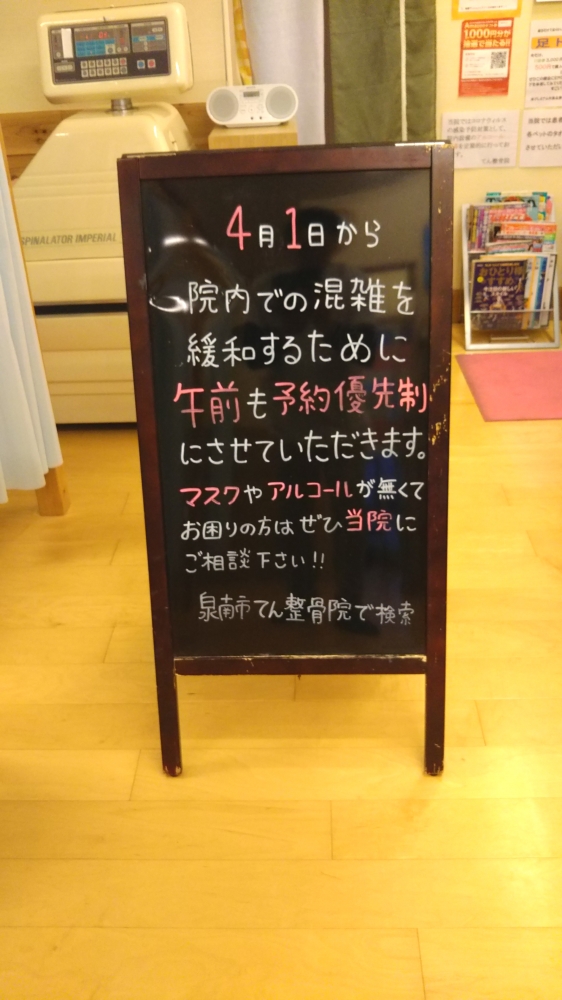 4月1日から
院内での混雑を
緩和するために
午前も予約優先制
にさせていただきます。
マスクやアルコールが無くて
お困りの方はぜひ当院に
ご相談下さい!!
泉南市てん整骨院で検索
SPINALATOR IMPERIAL
1,000円分が
おひとり様